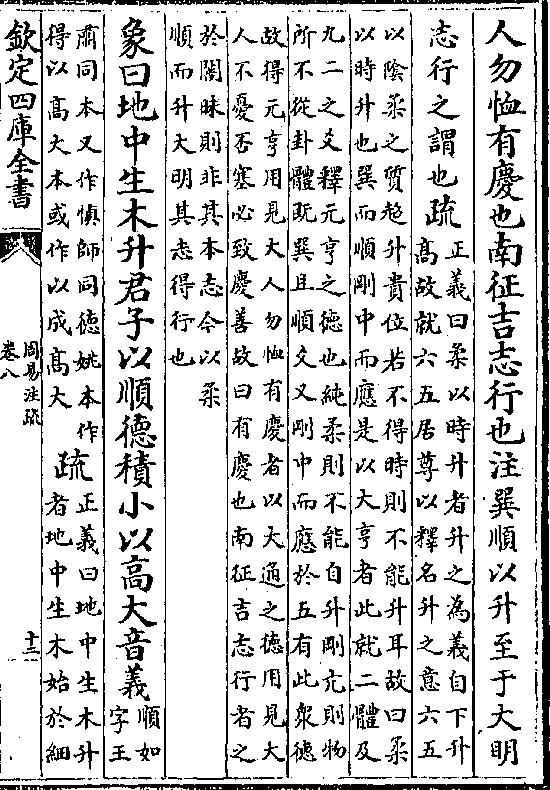 人勿恤有慶也南征吉志行也注巽順以升至于大明
志行之謂也疏
正義曰柔以時升者升之為義自下升
髙故就六五居尊以釋名升之意六五
以隂柔之質超升貴位若不得時則不能升耳故曰柔
以時升也巽而順剛中而應是以大亨者此就二體及
九二之爻釋元亨之德也純柔則不能自升剛亢則物
所不從卦體既巽且順爻又剛中而應於五有此衆德
故得元亨用見大人勿恤有慶者以大通之德用見大
人不憂否塞必致慶善故曰有慶也南征吉志行者之
於闇昧則非其本志今以柔
順而升大明其志得行也
象曰地中生木升君子以順德積小以髙大音義
順如
字王
肅同本又作慎師同德姚本作
得以髙大本或作以成髙大
疏
正義曰地中生木升
者地中生木始於細
欽定四庫全書
周易注疏
卷八
十三